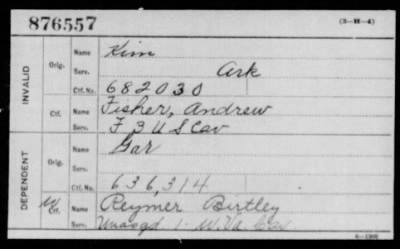 876557 (3-H-4)
INVALID
Orig. Name Kim
Serv. Ark
Ctf. No. 682030
Ctf. Name Fisher, Andrew
Serv. F 3 U S Cav
DEPENDENT
Orig. Name Gar
Serv.
Ctf. No. 636,314
W Ctf. Name Reymer Birtley
Serv. Unasgd 1 W.Va. Cav